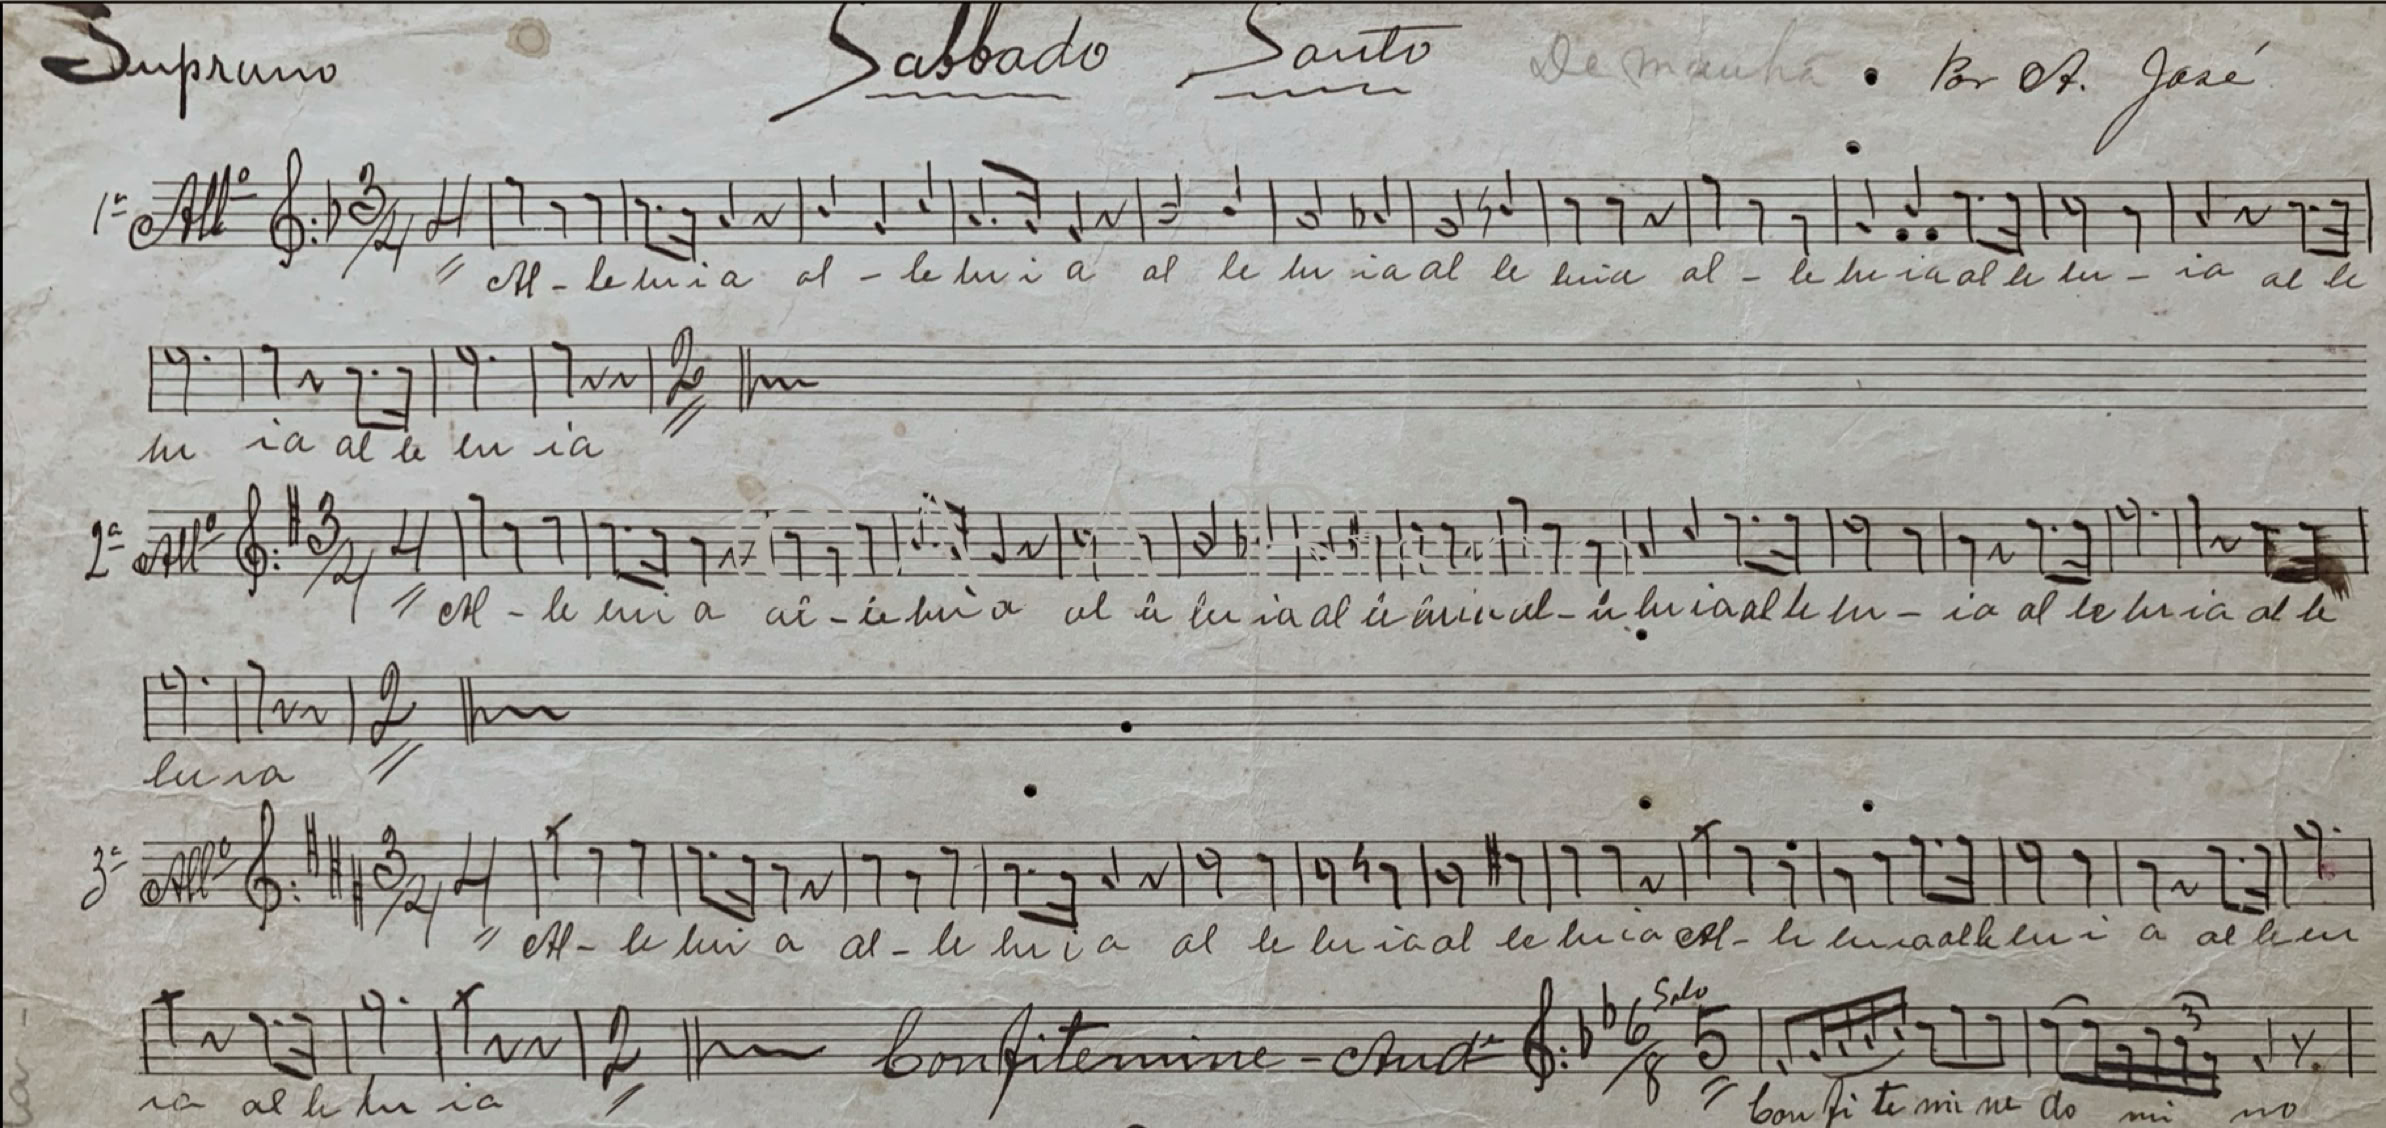 Suprano Sabbado Santo De manhã Por A. José
1ª All.º 3/4 4
Al - le lui a al - le lu i a al le lu ia al le luia al - le lu ia al le lu - ia al le
2
lu ia al le lu ia
2ª All.º 3/4 4
Al - le lui a al - le lui a al le lu ia al le luia al - le lu ia al le lu - ia al le lu ia al le
2
lu ia
3ª All.º 3/4 4
Al - le lui a al - le lu i a al le lu ia al le lu ia Al - le lu ia al le lu i a al le lu
2 Confitemine - And.e 6/8 Solo 5 3
ia al le lu ia Con fi te mi ne do mi no